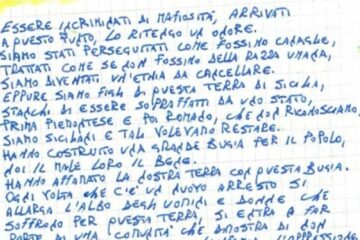 ESSERE INCRIMINATI DI MAFIOSITÀ, ARRIVATI
A QUESTO PUNTO, LO RITENGO UN ONORE.
SIAMO STATI PERSEGUITATI COME FOSSIMO CANAGLIE,
TRATTATI COME SE NON FOSSIMO DELLA RAZZA UMANA,
SIAMO DIVENTATI UN'ETNIA DA CANCELLARE.
EPPURE SIAMO FIGLI DI QUESTA TERRA DI SICILIA,
STANCHI DI ESSERE SOPRAFFATTI DA UNO STATO,
PRIMA PIEMONTESE E POI ROMANO, CHE NON RICONOSCIAMO.
SIAMO SICILIANI E TALI VOLEVAMO RESTARE.
HANNO COSTRUITO UNA GRANDE BUGIA PER IL POPOLO,
NOI IL MALE LORO IL BENE.
HANNO AFFAMATO LA NOSTRA TERRA CON QUESTA BUGIA.
OGNI VOLTA CHE C'E' UN NUOVO ARRESTO SI
ALLARGA L'ALBO DEGLI UOMINI E DONNE CHE
SOFFRONO PER QUESTA TERRA, SI ENTRA A FAR
PARTE DI UNA COMUNITÀ CHE DIMOSTRA DI NON